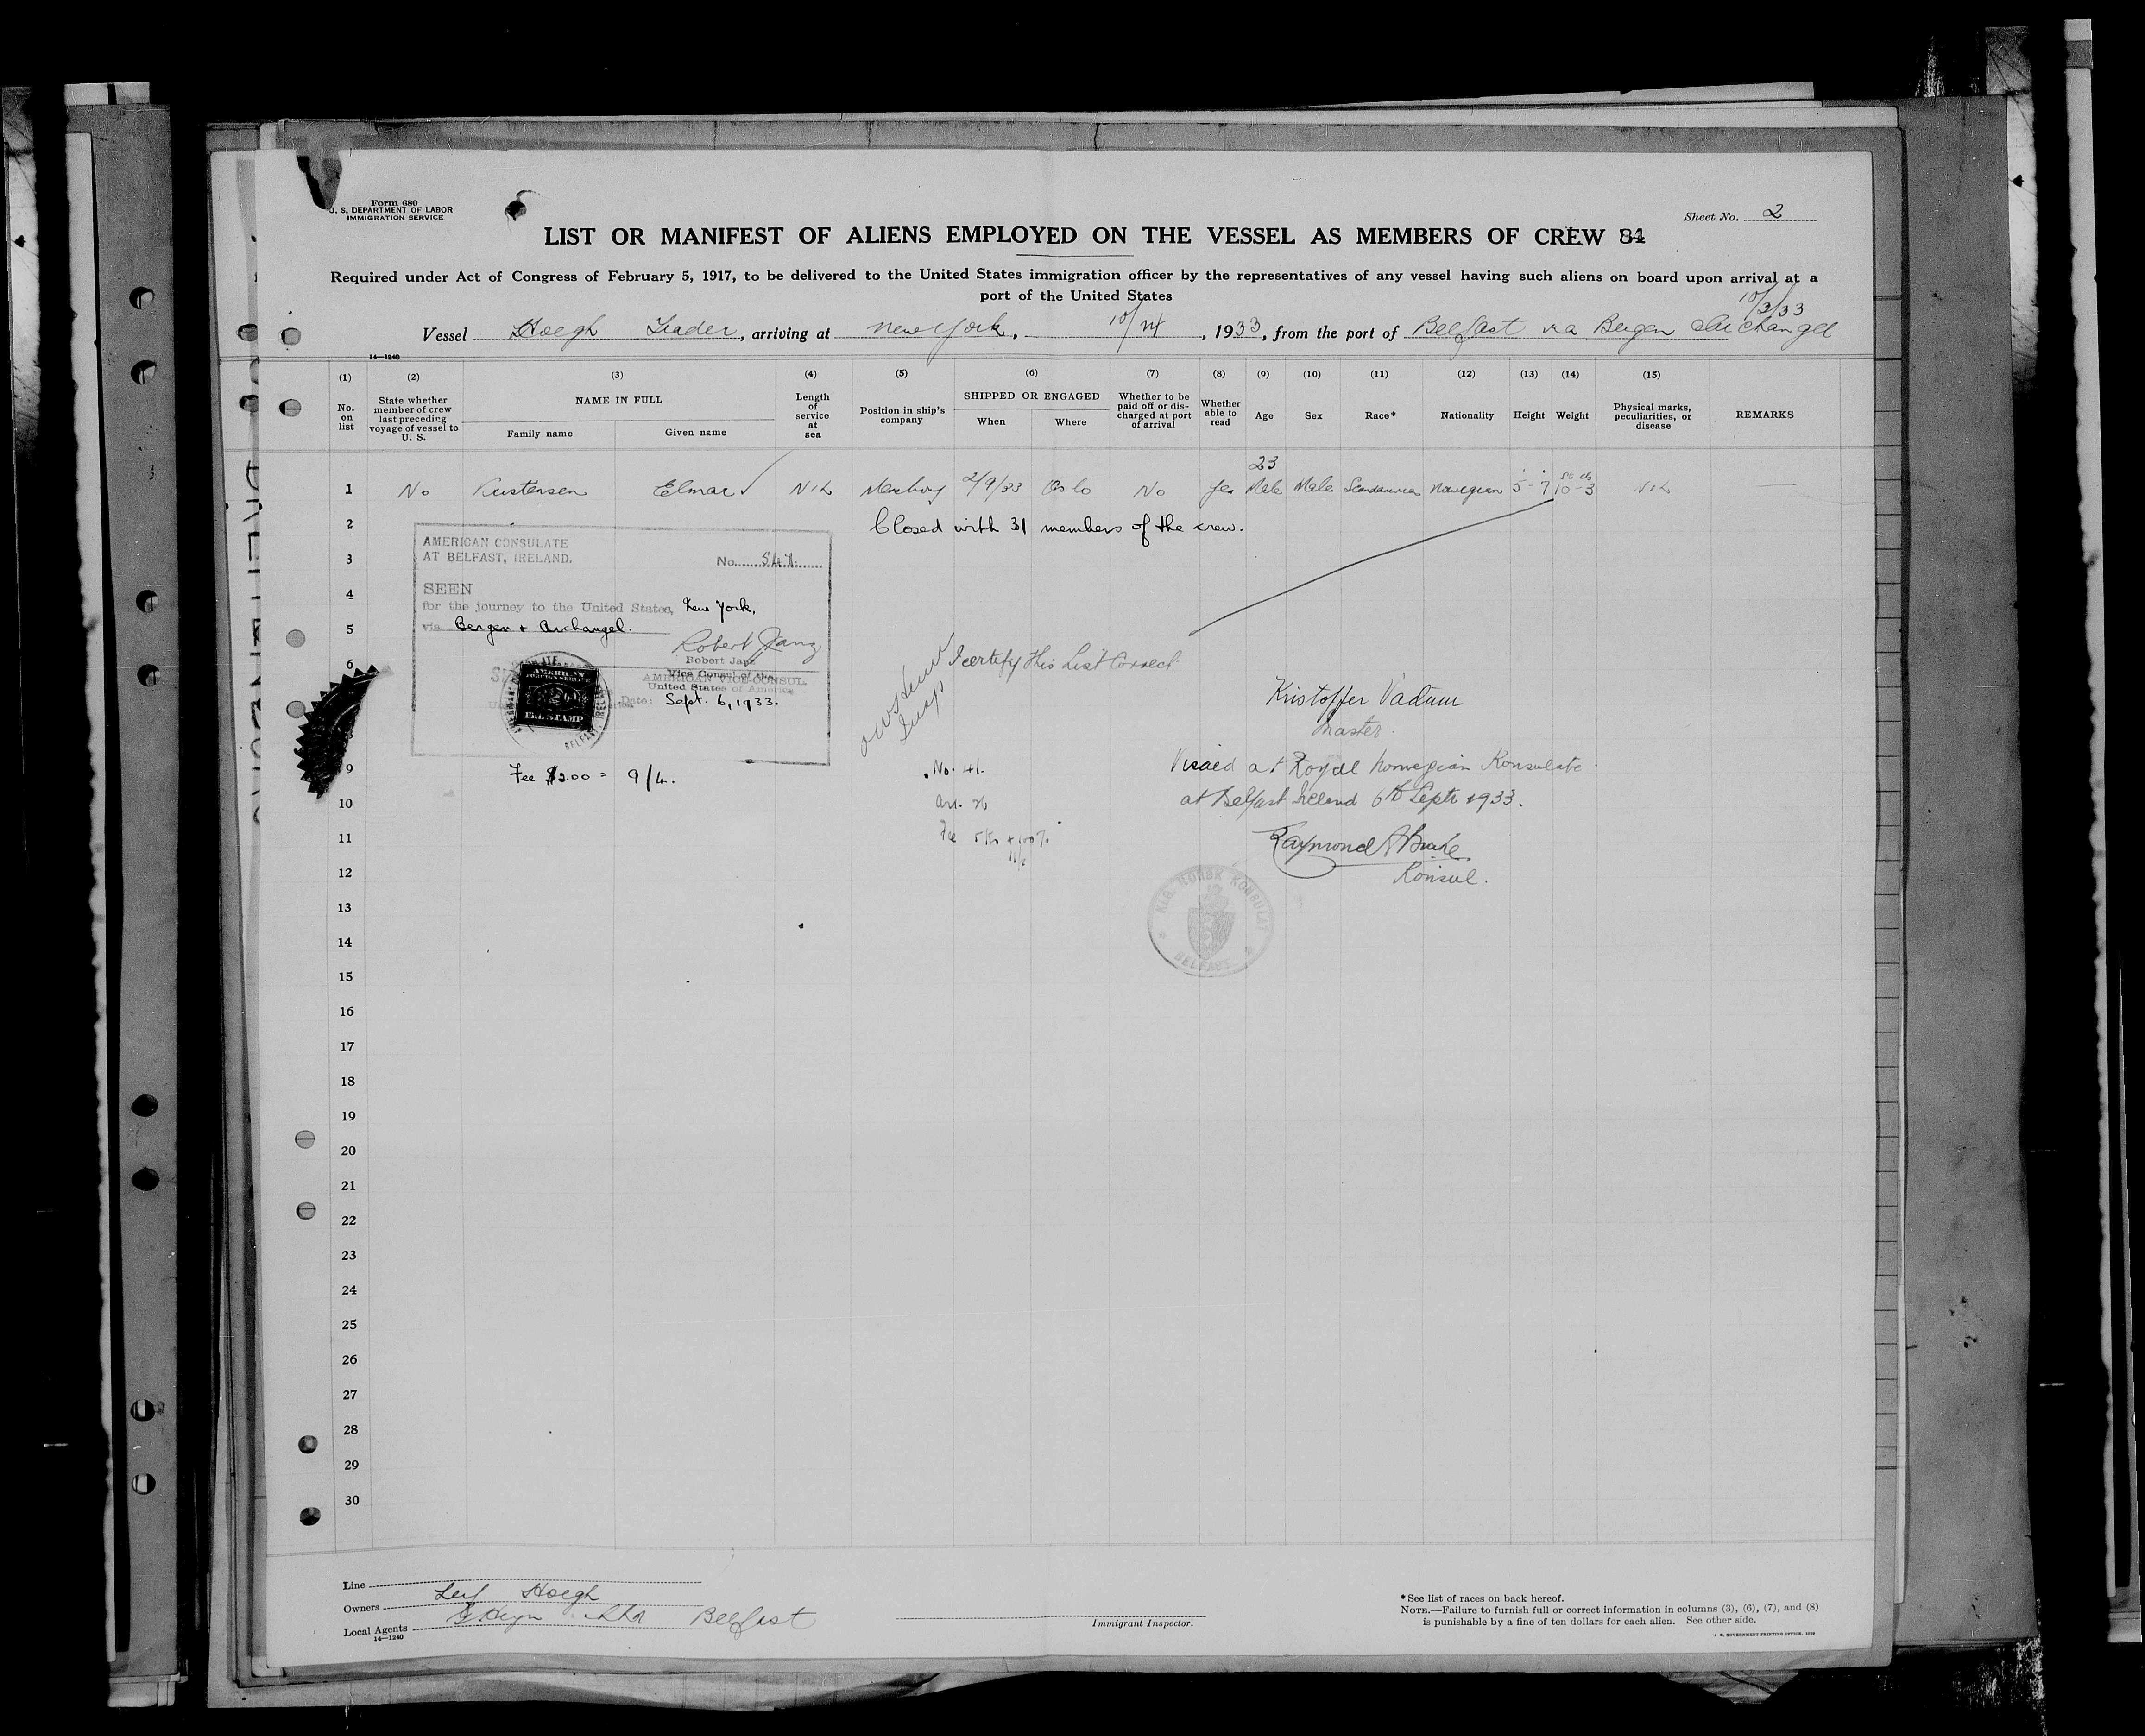 Form 680
U. S. DEPARTMENT OF LABOR
IMMIGRATION SERVICE
Sheet No. 2
LIST OR MANIFEST OF ALIENS EMPLOYED ON THE VESSEL AS MEMBERS OF CREW 84
Required under Act of Congress of February 5, 1917, to be delivered to the United States immigration officer by the representatives of any vessel having such aliens on board upon arrival at a
port of the United States
10/3/33
Vessel Hoegh Trader, arriving at New York, 10/, 1933, from the port of Belfast via Bergen Archangel
14—1240
(1) (2) (3) (4) (5) (6) (7) (8) (9) (10) (11) (12) (13) (14) (15)
No. on list
State whether member of crew last preceding voyage of vessel to U. S.
NAME IN FULL
Family name
Given name
Length of service at sea
Position in ship's company
SHIPPED OR ENGAGED
When
Where
Whether to be paid off or discharged at port of arrival
Whether able to read
Age
Sex
Race*
Nationality
Height
Weight
Physical marks, peculiarities, or disease
REMARKS
23
1 No Kristensen Elmar NIL Messboy 2/9/33 Oslo No Yes Male Male Scandinavian Norwegian 5-7 10-3 NIL
2 Closed with 31 members of the crew.
AMERICAN CONSULATE
AT BELFAST, IRELAND.
No. 541
SEEN
for the journey to the United States, New York,
via Bergen + Archangel.
Robert Janz
Robert Janz
Vice Consul of the
AMERICAN VICE-CONSUL
United States of America
Date: Sept. 6, 1933.
AMERICAN
FOREIGN SERVICE
FEE STAMP
BELFAST
Fee $2.00 = 9/4.
I certify this List Correct
Kristoffer Vadum
Master.
Visaed at Royal Norwegian Konsulate
at Belfast Ireland 6th Septr 1933.
No. 41.
Art. 26
Fee 5 Kr + 100%
11/6
Raymond A
Konsul.
KLG. NORSK KONSULAT
BELFAST
3
4
5
6
9
10
11
12
13
14
15
16
17
18
19
20
21
22
23
24
25
26
27
28
29
30
Line
Owners Leif Hoegh
Local Agents G Heyn Belfast
14—1240
Immigrant Inspector.
*See list of races on back hereof.
NOTE.—Failure to furnish full or correct information in columns (3), (6), (7), and (8)
is punishable by a fine of ten dollars for each alien. See other side.
GOVERNMENT PRINTING OFFICE